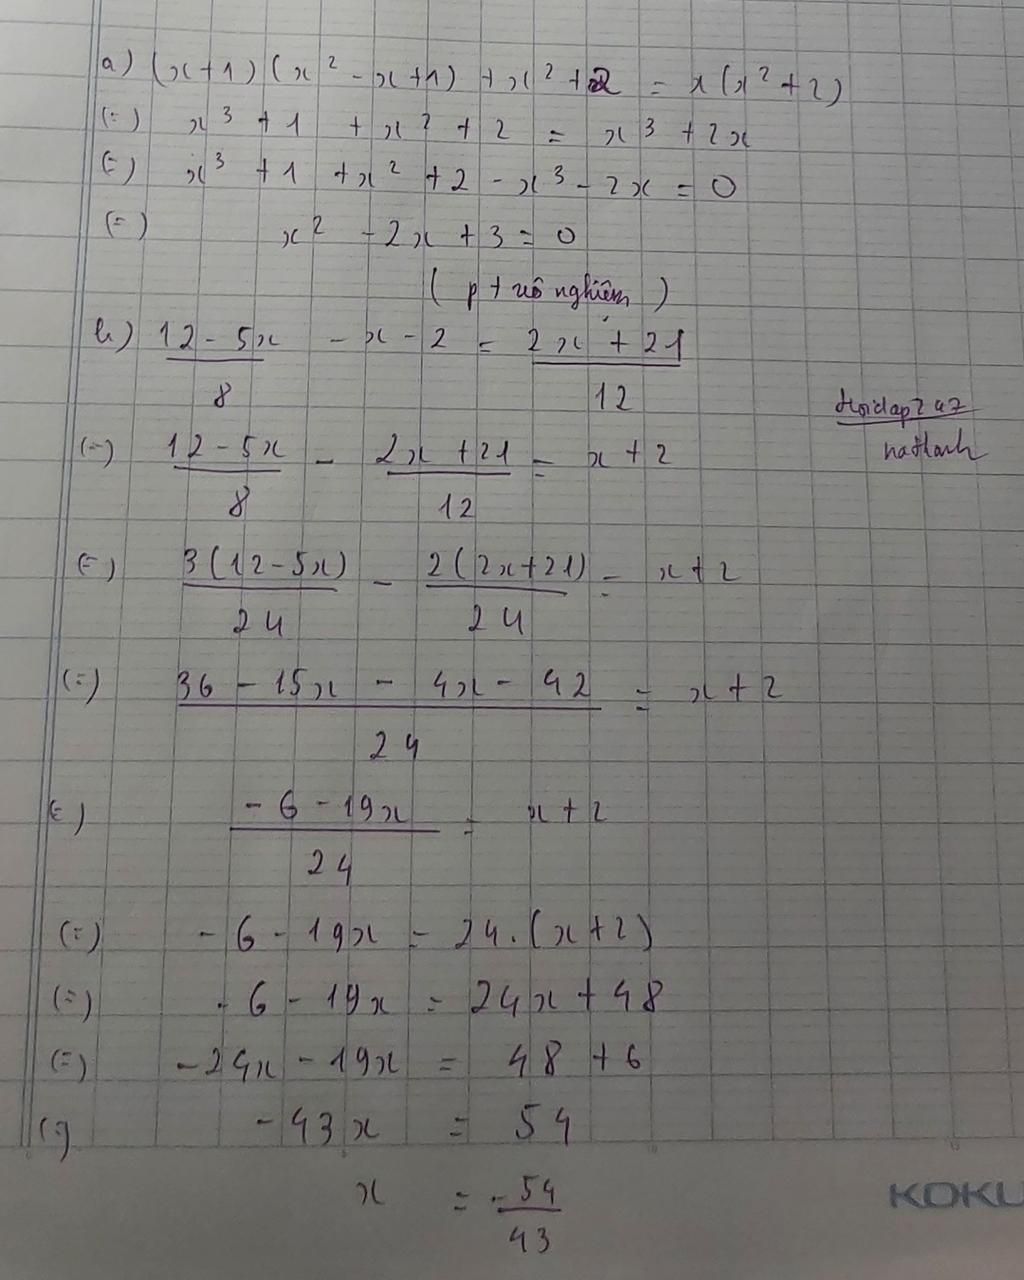 a) (x+1)(x² - x+1) + x² + 2 = x(x² + 2)
(=) x³ + 1 + x² + 2 = x³ + 2x
(=) x³ + 1 + x² + 2 - x³ - 2x = 0
(=) x² - 2x + 3 = 0
(pt vô nghiệm)
b) (12 - 5x)/8 - x - 2 = (2x + 21)/12
Hoidap247
(=) (12 - 5x)/8 - (2x + 21)/12 = x + 2
(=) 3(12 - 5x)/24 - 2(2x + 21)/24 = x + 2
(=) (36 - 15x - 4x - 42)/24 = x + 2
(=) (-6 - 19x)/24 = x + 2
(=) -6 - 19x = 24.(x+2)
(=) -6 - 19x = 24x + 48
(=) -24x - 19x = 48 + 6
(=) -43x = 54
x = -54/43
KOKU